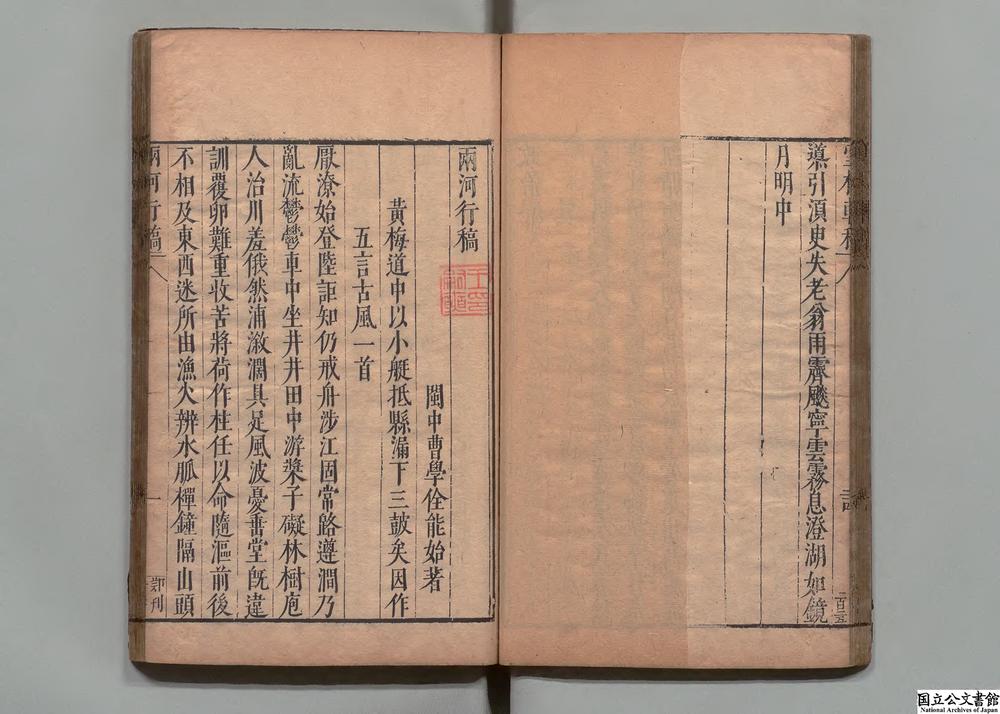 導引湏史失老翁雨霽颷寧雲霧息澄湖如鏡
月明中
兩河行稿
閩中曹學佺能始著
黃梅道中以小艇抵縣漏下三鼓矣因作
五言古風一首
厭潦始登陸詎知仍戒舟涉江固常路遵澗乃
亂流鬱鬱車中坐井井田中游槳子礙林樹庖
人治川羞俄然浦漵濶具足風波憂垂堂旣違
訓覆卵難重收苦將荷作柱任以命隨漚前後
不相及東西迷所由漁火辨水脈樿鐘隔山頭
兩河行稿
一
刊
国立公文書館
National Archives of Japan